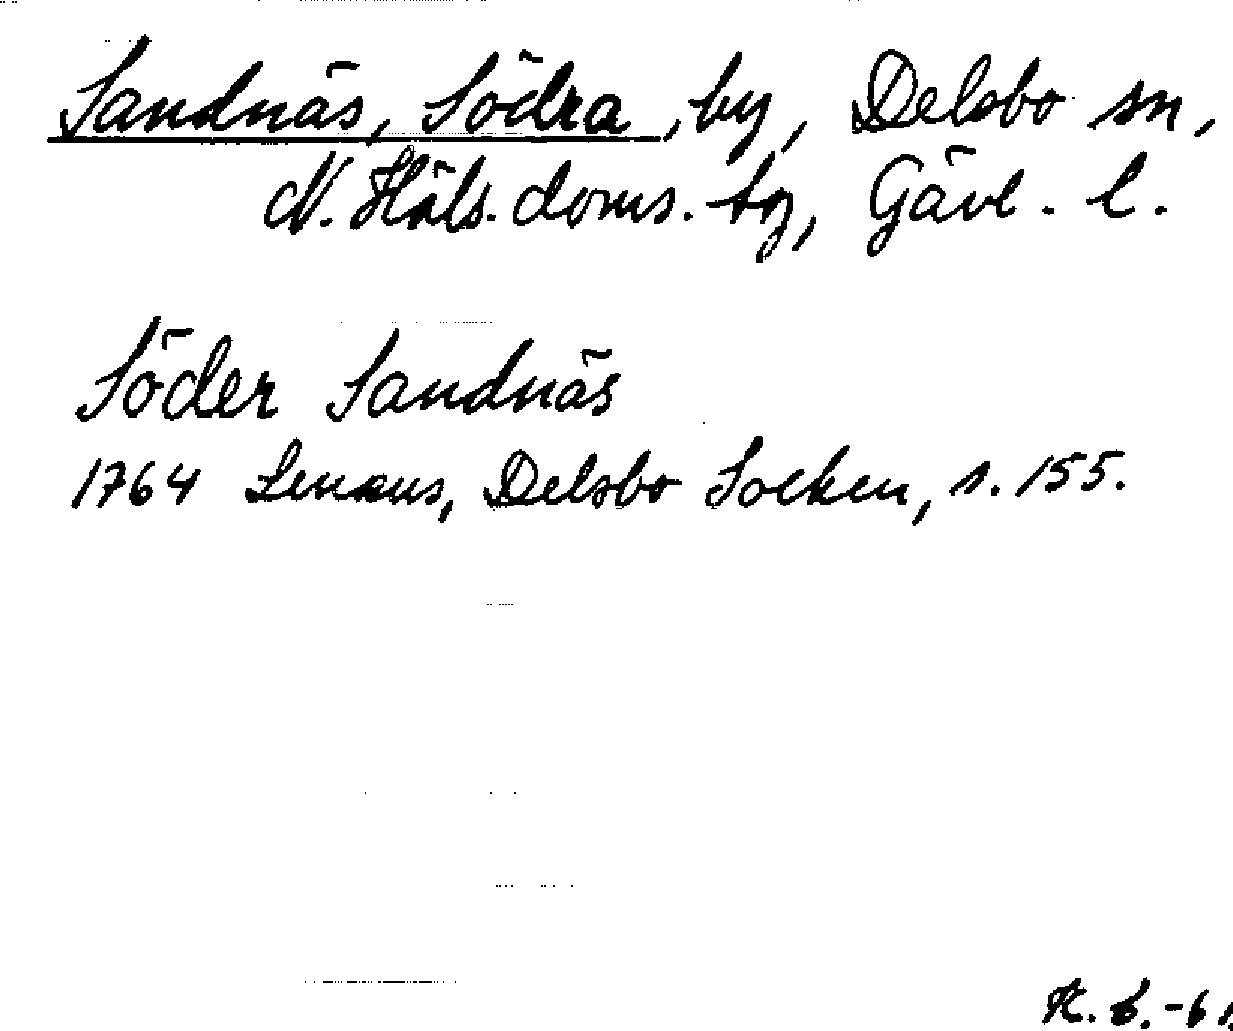 Sandnäs, Södra, by, Delsbo sn,
N. Häls. doms. tg, Gävl. l.
Söder Sandnäs
1764 Lenæus, Delsbo Socken, s. 155.
-61